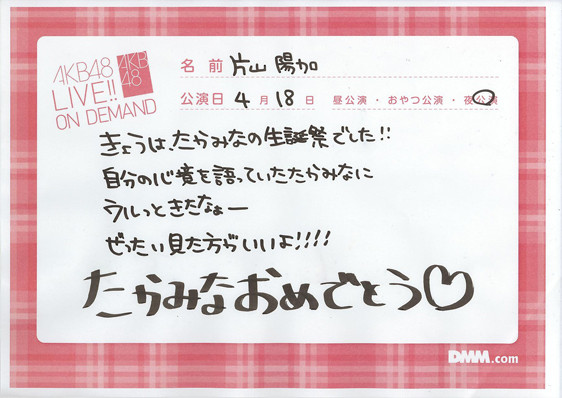 AKB48
LIVE!!
ON DEMAND
AKB
48
名前 片山 陽加
公演日 4月18日 昼公演・おやつ公演・夜公演
きょうは、たかみなの生誕祭でした!!
自分の心境を語っていたたかみなに
ウルっときたなぁー
ぜったい見た方がいいよ!!!!
たかみなおめでとう♡
DMM.com